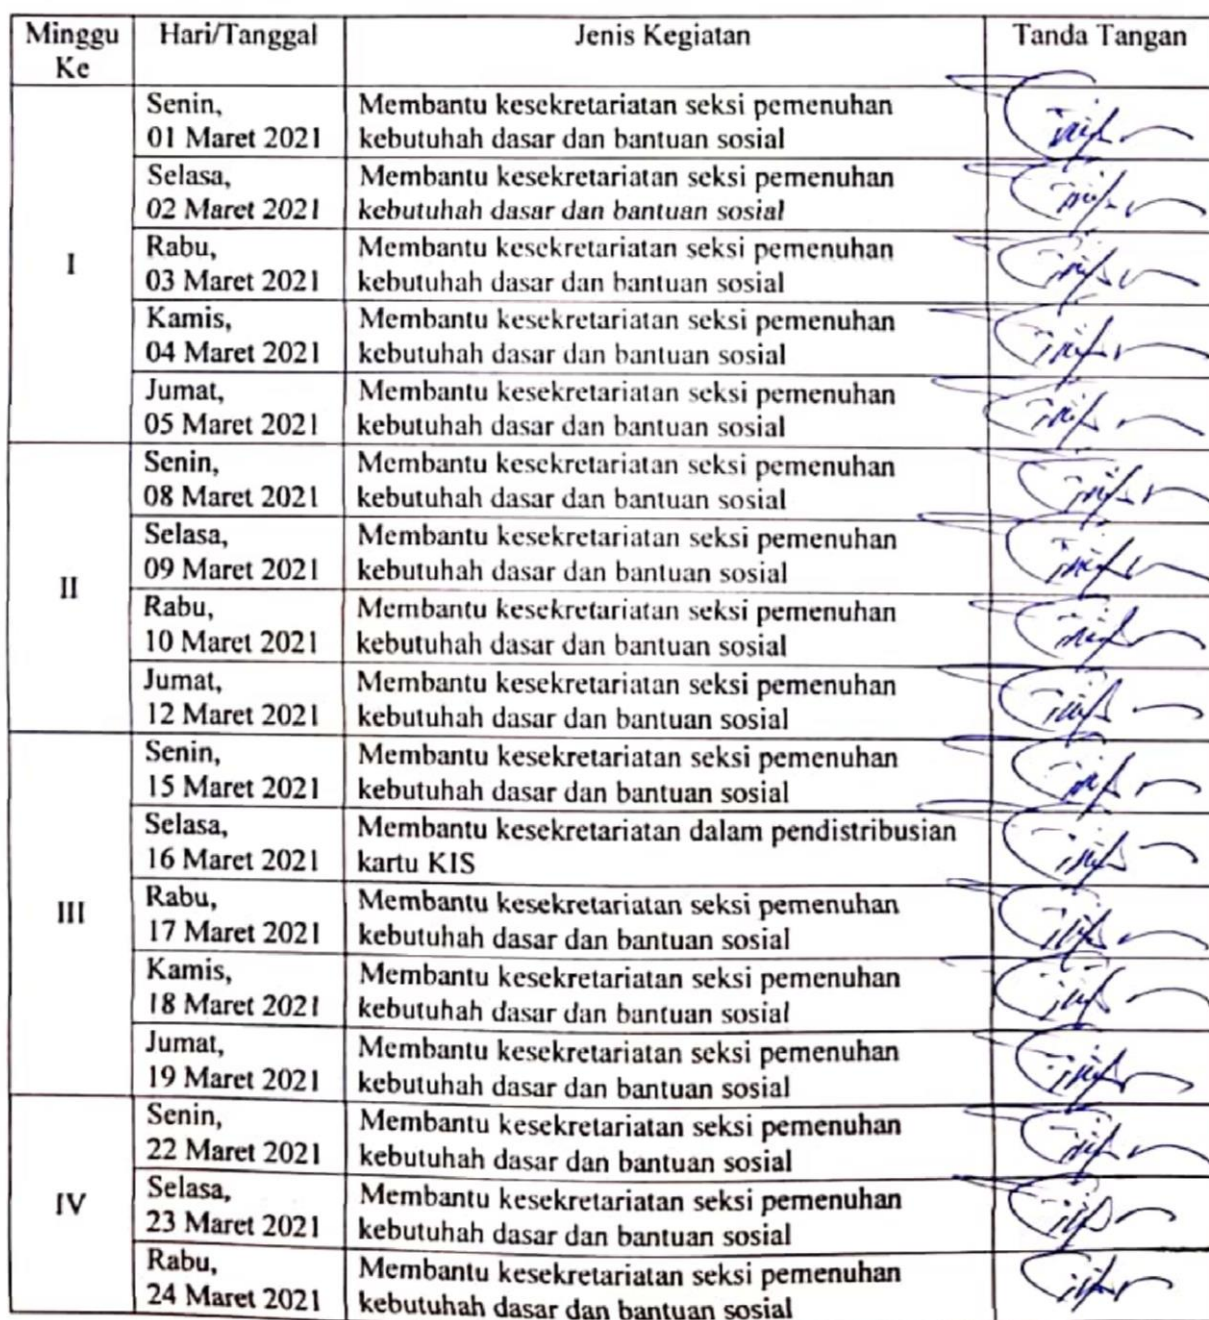 Minggu Ke
Hari/Tanggal
Jenis Kegiatan
Tanda Tangan
I
Senin,
01 Maret 2021
Membantu kesekretariatan seksi pemenuhan
kebutuhah dasar dan bantuan sosial
Selasa,
02 Maret 2021
Membantu kesekretariatan seksi pemenuhan
kebutuhah dasar dan bantuan sosial
Rabu,
03 Maret 2021
Membantu kesekretariatan seksi pemenuhan
kebutuhah dasar dan bantuan sosial
Kamis,
04 Maret 2021
Membantu kesekretariatan seksi pemenuhan
kebutuhah dasar dan bantuan sosial
Jumat,
05 Maret 2021
Membantu kesekretariatan seksi pemenuhan
kebutuhah dasar dan bantuan sosial
II
Senin,
08 Maret 2021
Membantu kesekretariatan seksi pemenuhan
kebutuhah dasar dan bantuan sosial
Selasa,
09 Maret 2021
Membantu kesekretariatan seksi pemenuhan
kebutuhah dasar dan bantuan sosial
Rabu,
10 Maret 2021
Membantu kesekretariatan seksi pemenuhan
kebutuhah dasar dan bantuan sosial
Jumat,
12 Maret 2021
Membantu kesekretariatan seksi pemenuhan
kebutuhah dasar dan bantuan sosial
III
Senin,
15 Maret 2021
Membantu kesekretariatan seksi pemenuhan
kebutuhah dasar dan bantuan sosial
Selasa,
16 Maret 2021
Membantu kesekretariatan dalam pendistribusian
kartu KIS
Rabu,
17 Maret 2021
Membantu kesekretariatan seksi pemenuhan
kebutuhah dasar dan bantuan sosial
Kamis,
18 Maret 2021
Membantu kesekretariatan seksi pemenuhan
kebutuhah dasar dan bantuan sosial
Jumat,
19 Maret 2021
Membantu kesekretariatan seksi pemenuhan
kebutuhah dasar dan bantuan sosial
IV
Senin,
22 Maret 2021
Membantu kesekretariatan seksi pemenuhan
kebutuhah dasar dan bantuan sosial
Selasa,
23 Maret 2021
Membantu kesekretariatan seksi pemenuhan
kebutuhah dasar dan bantuan sosial
Rabu,
24 Maret 2021
Membantu kesekretariatan seksi pemenuhan
kebutuhah dasar dan bantuan sosial